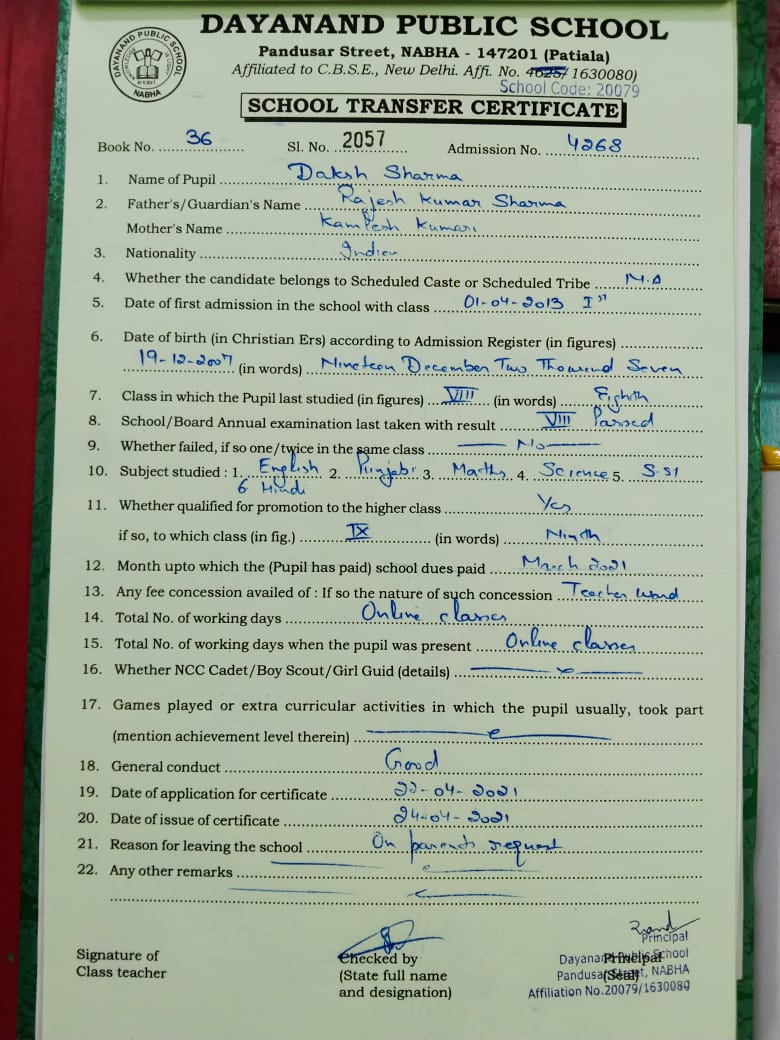 DAYANAND PUBLIC SCHOOL
DAYANAND PUBLIC SCHOOL
NABHA
Pandusar Street, NABHA - 147201 (Patiala)
Affiliated to C.B.S.E., New Delhi. Affi. No. 1630080)
School Code: 20079
SCHOOL TRANSFER CERTIFICATE
Book No. 36 Sl. No. 2057 Admission No. 4268
1. Name of Pupil Daksh Sharma
2. Father's/Guardian's Name Rajesh Kumar Sharma
Mother's Name Kamlesh Kumari
3. Nationality Indian
4. Whether the candidate belongs to Scheduled Caste or Scheduled Tribe N.A
5. Date of first admission in the school with class 01-04-2013 Ist
6. Date of birth (in Christian Ers) according to Admission Register (in figures)
19-12-2007 (in words) Nineteen December Two Thousand Seven
7. Class in which the Pupil last studied (in figures) VIII (in words) Eighth
8. School/Board Annual examination last taken with result VIII Passed
9. Whether failed, if so one/twice in the same class No
10. Subject studied : 1. English 2. Punjabi 3. Maths 4. Science 5. S.St
6 Hindi
11. Whether qualified for promotion to the higher class Yes
if so, to which class (in fig.) IX (in words) Ninth
12. Month upto which the (Pupil has paid) school dues paid March 2021
13. Any fee concession availed of : If so the nature of such concession Teacher Ward
14. Total No. of working days Online classes
15. Total No. of working days when the pupil was present Online classes
16. Whether NCC Cadet/Boy Scout/Girl Guid (details)
17. Games played or extra curricular activities in which the pupil usually, took part
(mention achievement level therein)
18. General conduct Good
19. Date of application for certificate 22-04-2021
20. Date of issue of certificate 24-04-2021
21. Reason for leaving the school On parents request
22. Any other remarks
Signature of
Class teacher
Checked by
(State full name
and designation)
Principal
(Seal)
Principal
Dayanand Public School
Pandusar Street, NABHA
Affiliation No.20079/1630080